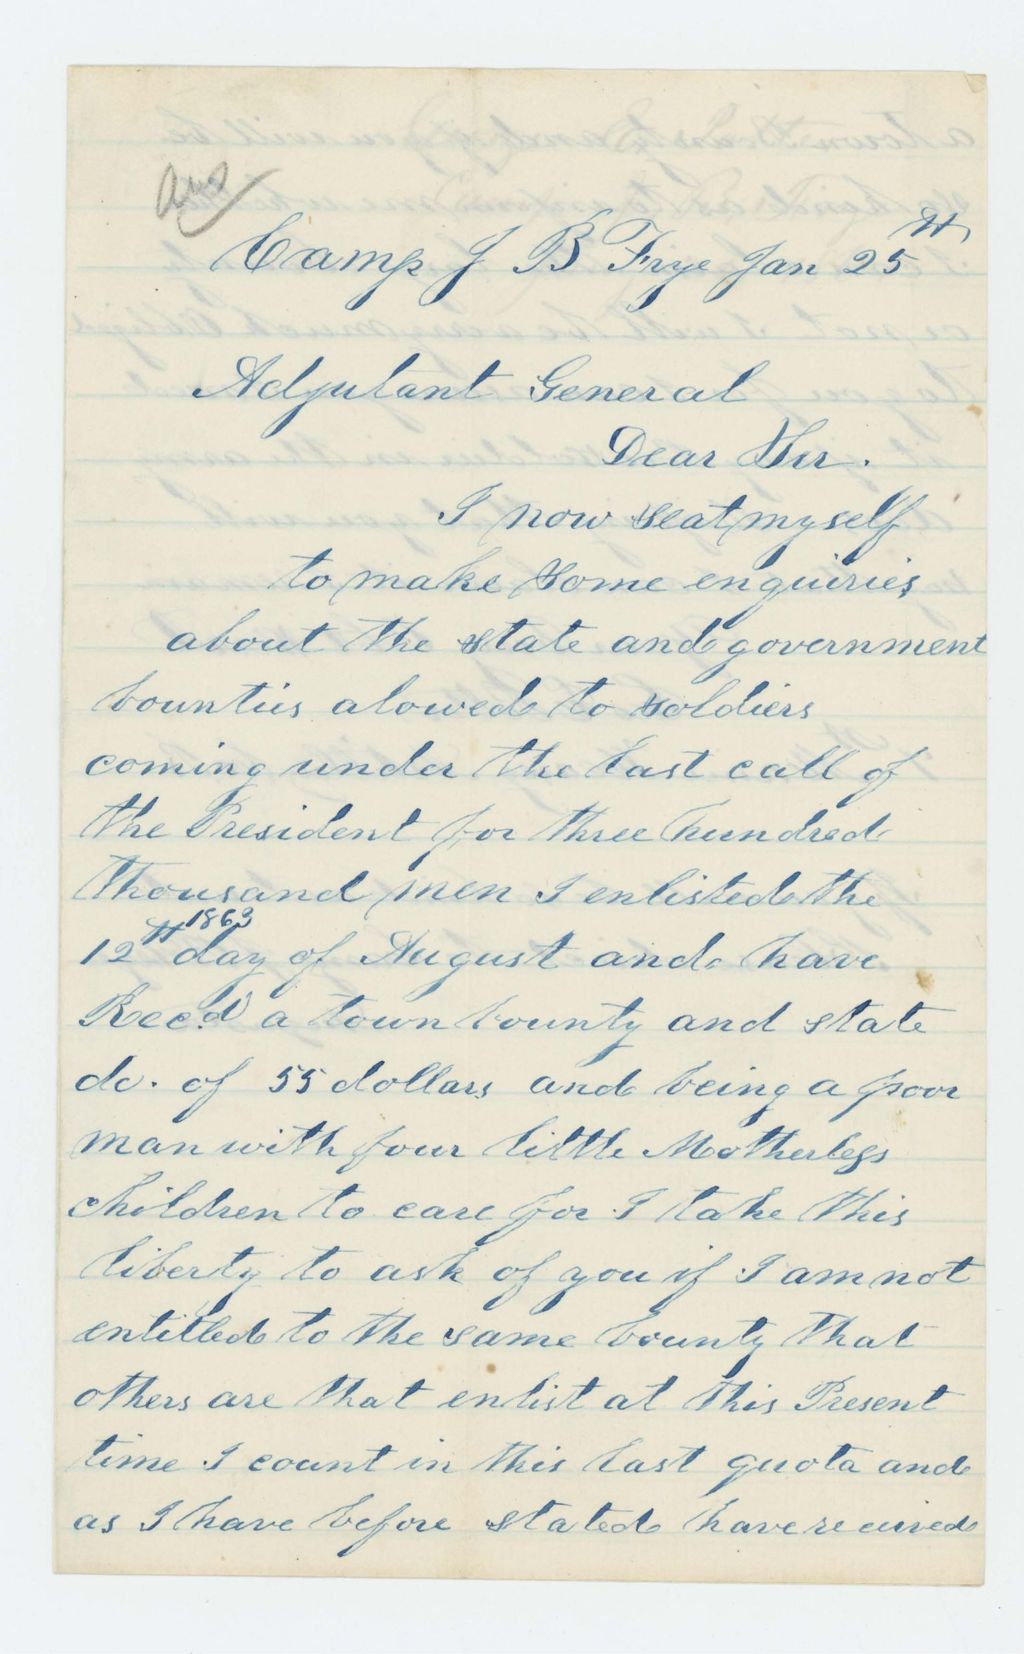 Ans
Camp J B Frye Jan 25th
Adjutant General
Dear Sir.
I now seat myself
to make some enquiries
about the state and government
bountis alowed to soldiers
coming under the last call of
the President for three hundred
thousand men I enlisted the
12th 1863 day of August and have
Rec.d a town bounty and state
do. of 55 dollars and being a poor
man with four little Motherless
children to care for I take this
liberty to ask of you if I am not
entitled to the same bounty that
others are that enlist at this Present
time I count in this last quota and
as I have before stated have received